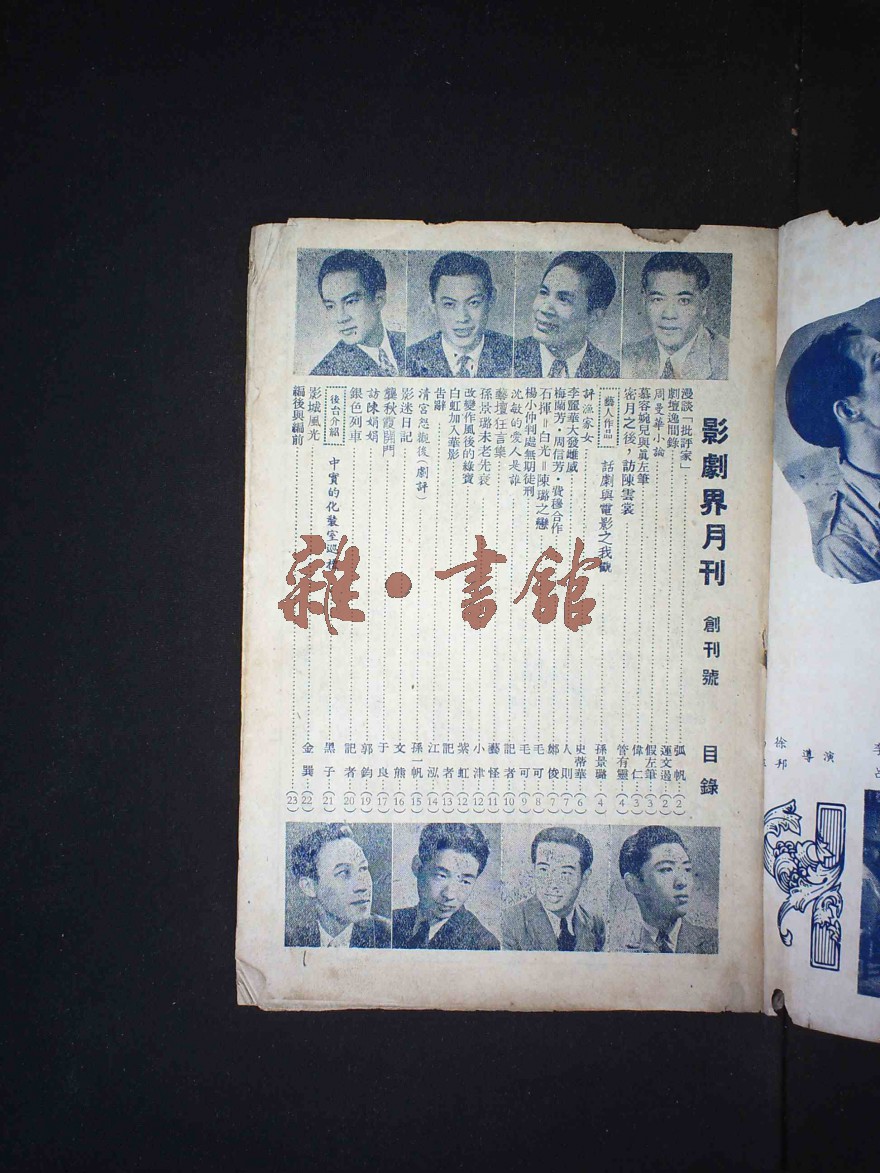 影劇界月刊 創刊號 目錄
漫談「批評家」 弧帆 (2)
劇壇逸聞錄 蓮文過 (2)
周曼華小論 假左筆 (3)
慕容婉兒與眞左筆 偉仁 (3)
密月之後，訪陳雲裳 管有靈 (4)
藝人作品 話劇與電影之我觀 孫景璐 (4)
評漁家女 史蒂華 (6)
李麗華大發雌威 人則 (7)
梅蘭芳・周信芳・費穆合作 鄭俊 (7)
石揮＝白光＝陳璐之戀 毛可 (8)
楊小仲判處無期徒刑 毛可 (9)
沈敏的愛人是誰 記者 (10)
藝壇狂言集 藝怪 (11)
孫景璐未老先衰 小津 (12)
改變作風後的綠寶 紫虹 (12)
白虹加入華影 記者 (13)
告辭 江泓 (14)
清宮怨觀後（劇評） 孫一帆 (15)
影迷日記 文熊 (16)
龔秋霞開門 于良 (17)
訪陳娟娟 郭鈞 (19)
銀色列車 記者 (20)
後台介紹 中實的化裝室巡禮 黑子 (21)
影城風光 金巽 (22)
編後與編前 (23)
雜・書館
導演
徐
邦
李